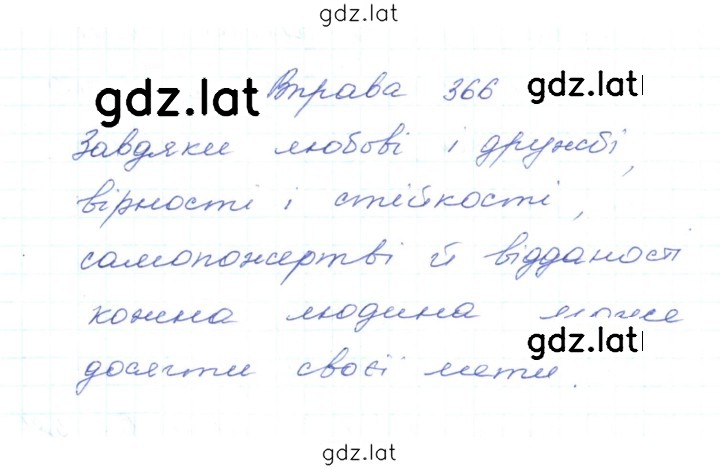 gdz.lat
gdz.lat Вправа 366 gdz.lat
Завдяки любові і дружбі,
вірності і стійкості,
самопожертві й відданості
кожна людина може
gdz.lat
досягти своєї мети.
gdz.lat